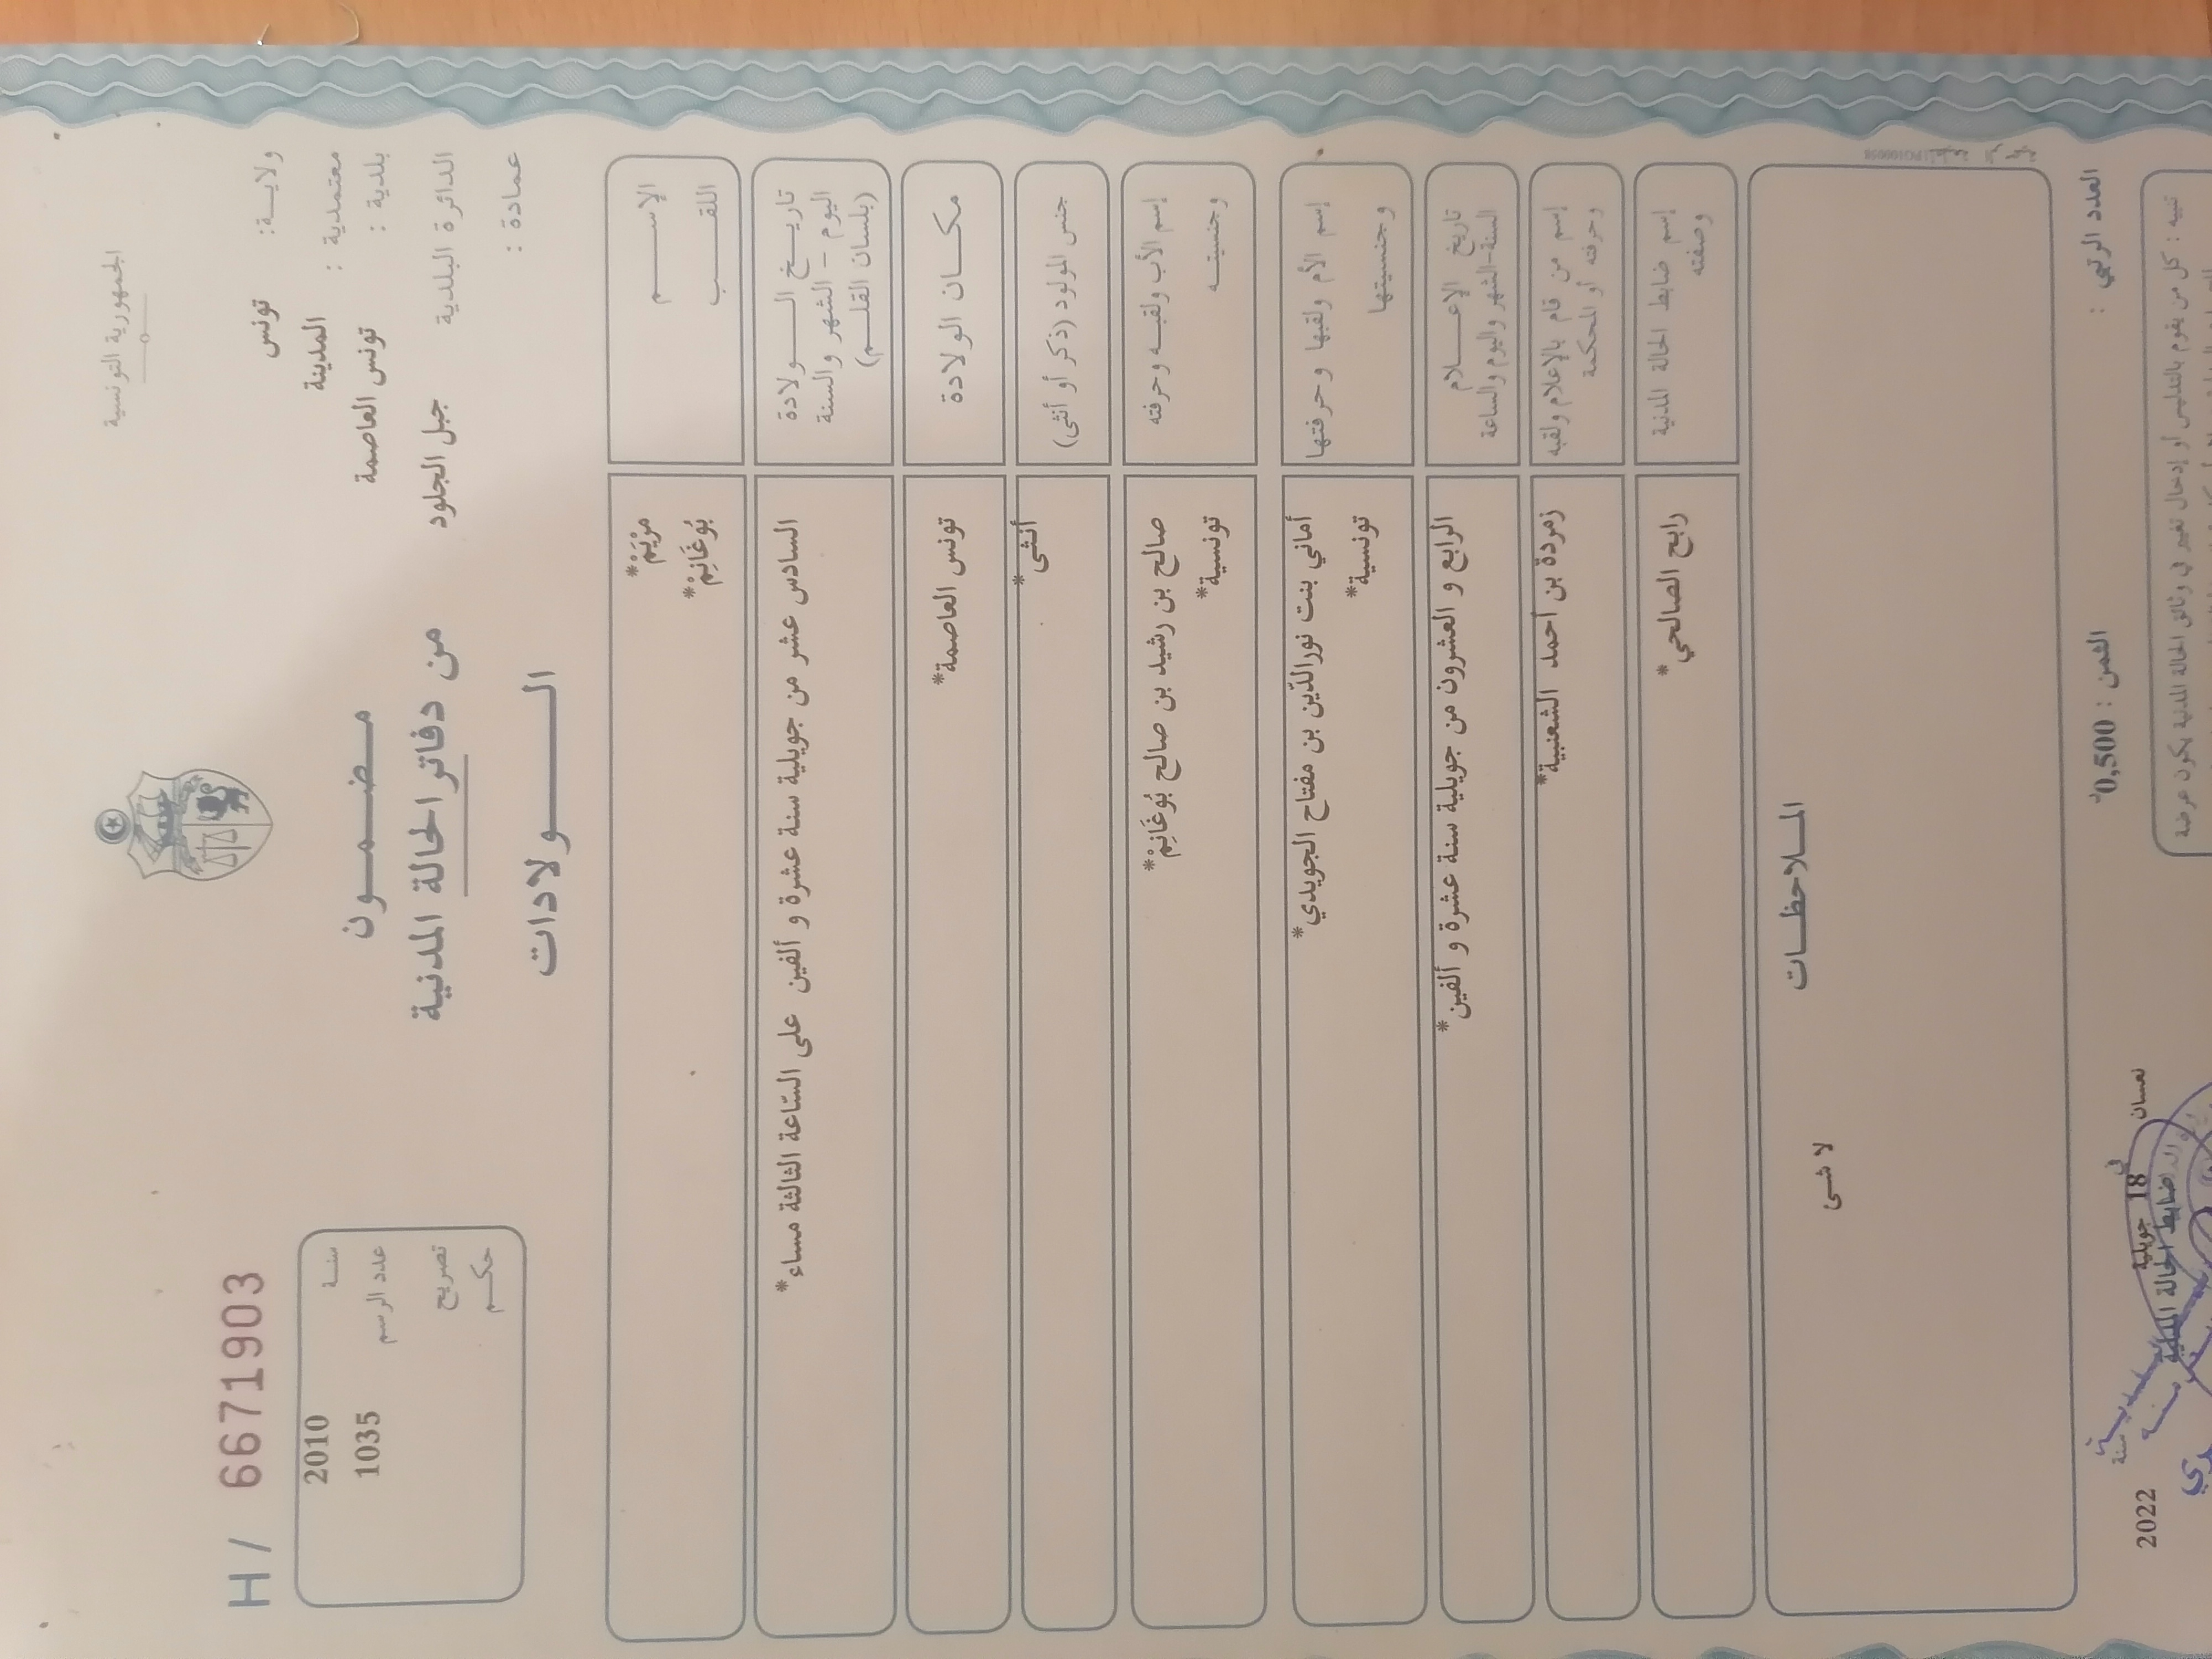 الجمهورية التونسية
H / 6671903
ولايـــة: تونس
معتمدية : المدينة
بلدية : تونس العاصمة
الدائرة البلدية جبل الجلود
عمادة :
سنـــة 2010
عدد الرسم 1035
تصريح
حكـــم
مـضـمـــون
من دفاتر الحالة المدنية
الـــــولادات
الإســـــم مَرْيَمْ*
اللقـــــب بُوغَانِمْ*
تاريــخ الـــولادة
اليوم - الشهر والسنة
(بلسان القلـــم)
السادس عشر من جويلية سنة عشرة و ألفين على السّاعة الثالثة مساء*
مكــان الولادة تونس العاصمة*
جنس المولود (ذكر أو أنثى) أنثى*
إسم الأب ولقبـــه وحرفته صالح بن رشيد بن صالح بُوغَانِمْ*
وجنسيتـــه تونسية*
إسم الأم ولقبها وحرفتها أماني بنت نورالدّين بن مفتاح الجويدي*
وجنسيتها تونسية*
تاريخ الإعـــلام
السنة-الشهر واليوم والساعة
الرابع و العشرون من جويلية سنة عشرة و ألفين*
إسم من قام بالإعلام ولقبه
وحرفته أو المحكمة
زمردة بن أحمد الشعنبية*
إسم ضابط الحالة المدنية
وصفته
رابح الصالحي*
المــلاحظــات
لا شىء
العدد الرتبي :
الثمن : 0,500د
في 18 جويلية سنة 2022
ضابط الحالة المدنية
تنبيه : كل من يقوم بالتدليس أو إدخال تغيير في وثائق الحالة المدنية يكون عرضة